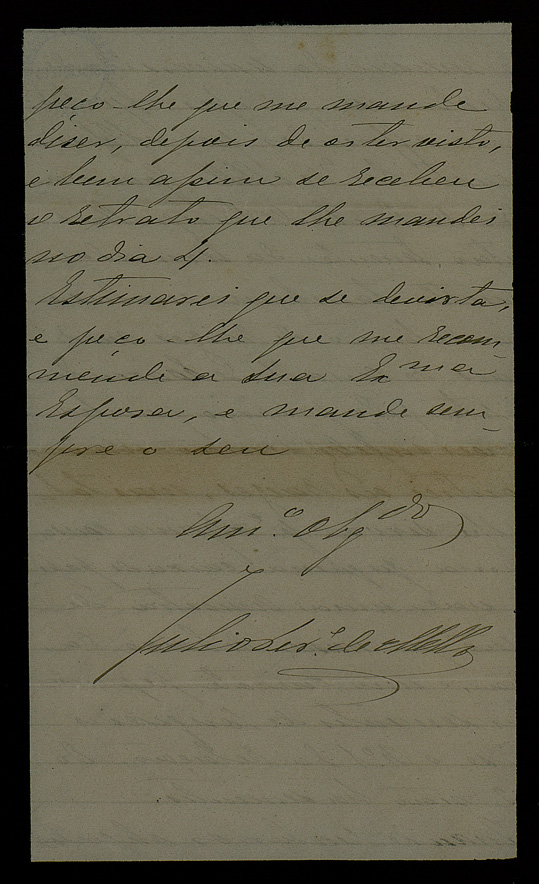 peço-lhe que me mande
diser, depois de os ter visto,
e bem assim se recebeu
o retrato que lhe mandei
no dia 4.
Estimarei que se devirta,
e peço-lhe que me recom-
mende a sua Exma
Esposa, e mande sem-
pre o seu
Am.º Obgdo
Julio de Mello